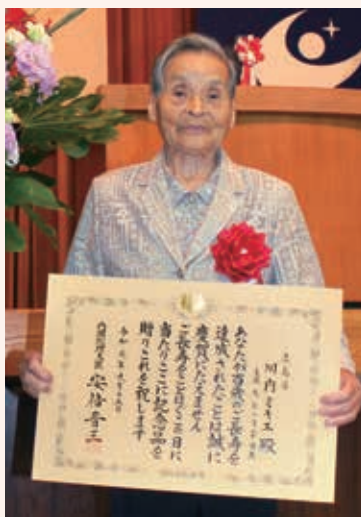 川内ミキエ 殿
あなたが百歳のご長寿を
達成されたことは誠に
慶賀にたえません
ご長寿をことほぐ本日に
当たりここに記念品を
贈りこれを祝します
令和元年九月十五日
内閣総理大臣 安倍晋三